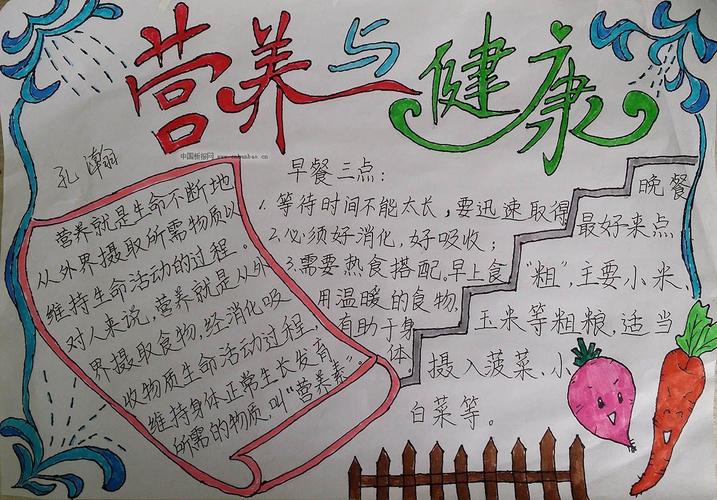 营养与健康
中国板报网 www.cnbanbao.cn
孔瀚
营养就是生命不断地
从外界摄取所需物质以
维持生命活动的过程。
对人来说，营养就是从外
界摄取食物，经消化吸
收物质生命活动过程，
维持身体正常生长发育
所需的物质，叫“营养素”。
早餐三点：
1.等待时间不能太长，要迅速取得
2.必须好消化，好吸收；
3.需要热食搭配。早上食
用温暖的食物，
有助于身
体
晚餐
最好来点
“粗”，主要小米，
玉米等粗粮，适当
摄入菠菜、小
白菜等。